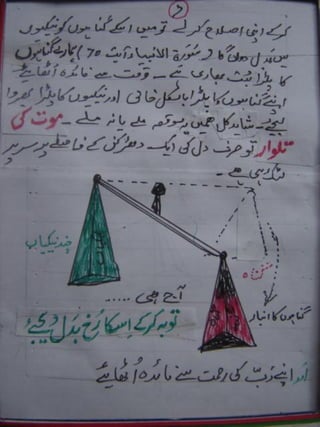 کر کے اپنی اصلاح کر لے تو میں اسکے گناہوں کو نیکیوں
میں بدل دوں گا (سورۃ الانبیاء آیت 70) ہمارے گناہوں
کا پلڑا بہت بھاری ہے۔ وقت سے فائدہ اُٹھائیے
اپنے گناہوں کا پلڑا بالکل خالی اور نیکیوں کا پلڑا بھروا
لیجئے۔ شاید کل ہمیں یہ موقعہ ملے یا نہ ملے۔ موت کی
تلوار تو صرف دل کی ایک دھڑکن کے فاصلے پر سر پر
لٹک رہی ہے۔
چند نیکیاں
گناہوں کا انبار
آج ہی .....
توبہ کر کے اسکا رُخ بدل دیجئے
اور اپنے ربّ کی رحمت سے فائدہ اُٹھائیے